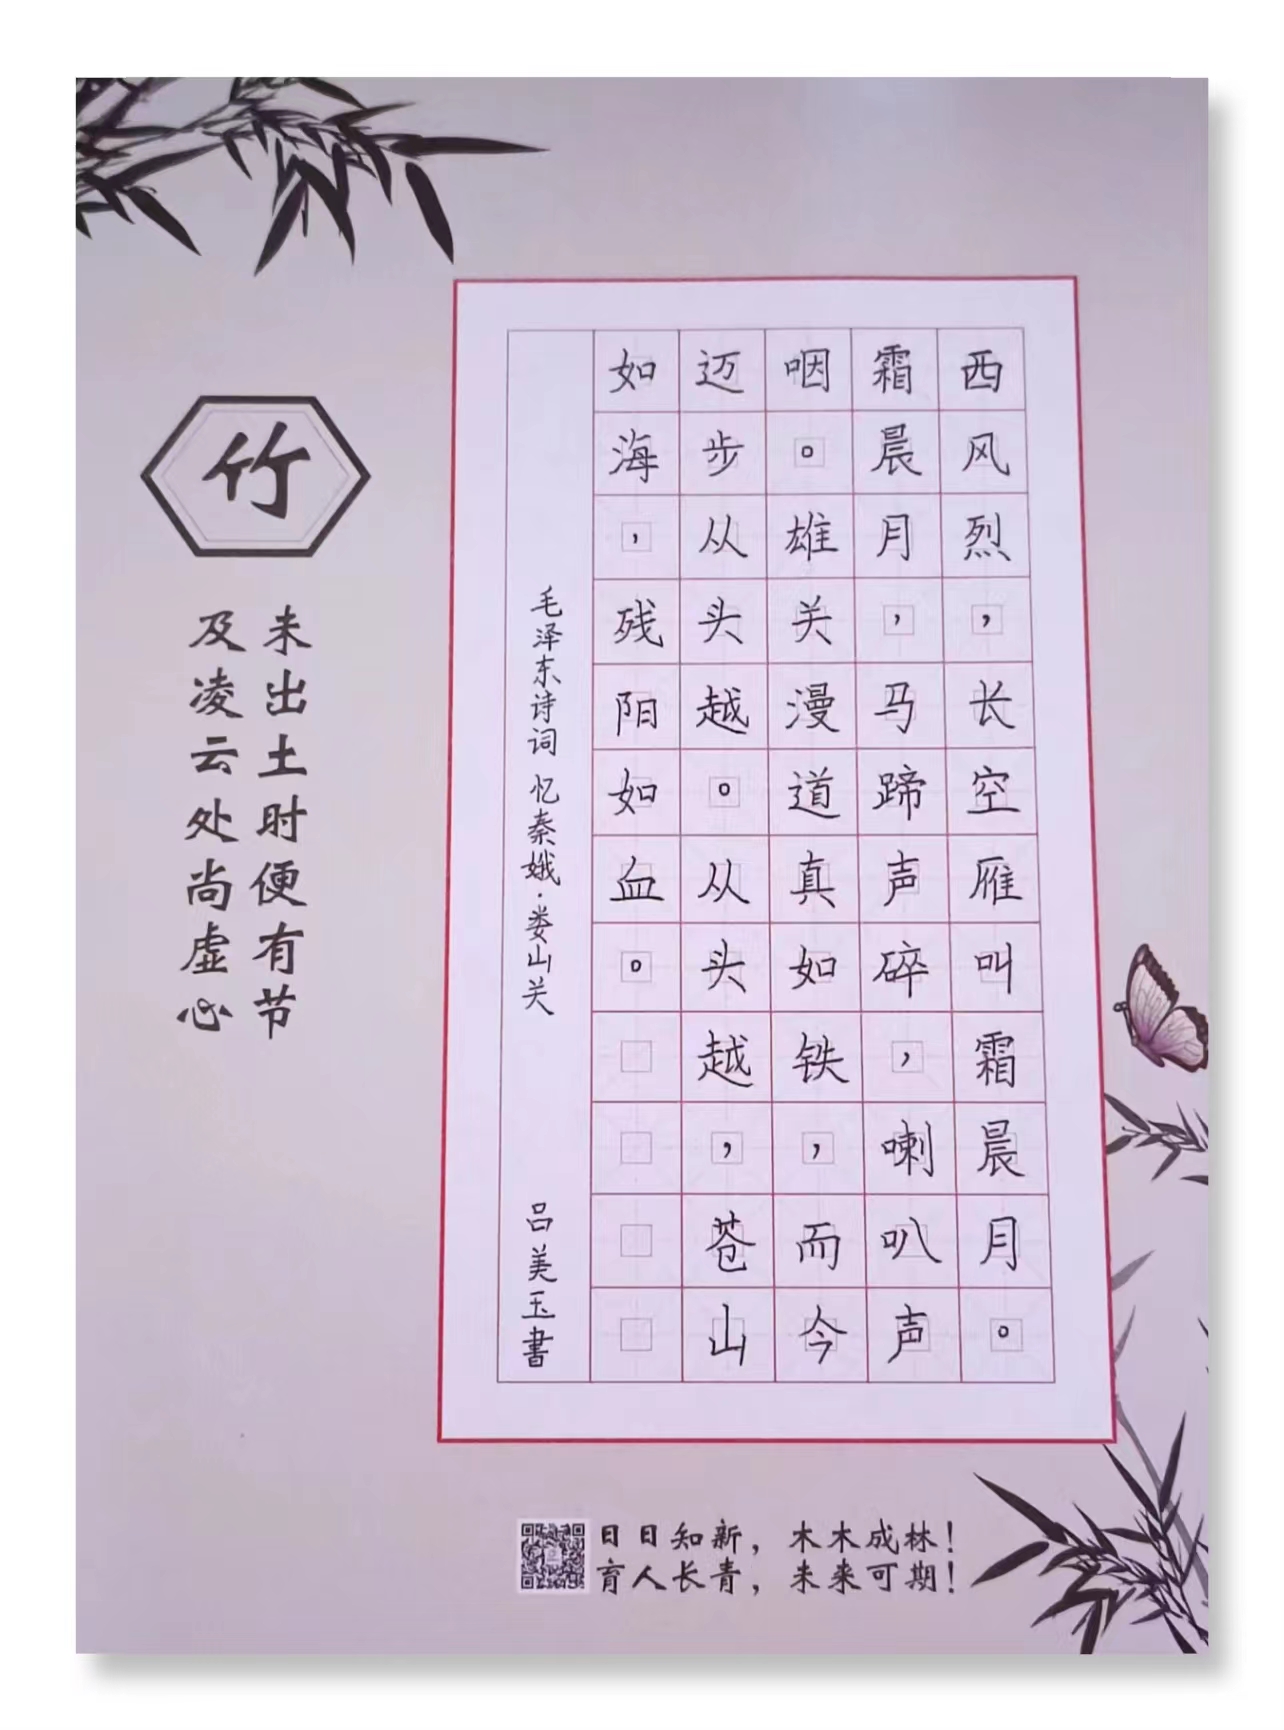 竹
未出土时便有节
及凌云处尚虚心
西风烈，长空雁叫霜晨月。
霜晨月，马蹄声碎，喇叭声
咽。雄关漫道真如铁，而今
迈步从头越。从头越，苍山
如海，残阳如血。
毛泽东诗词 忆秦娥·娄山关 吕美玉書
日日知新，木木成林！
育人长青，未来可期！